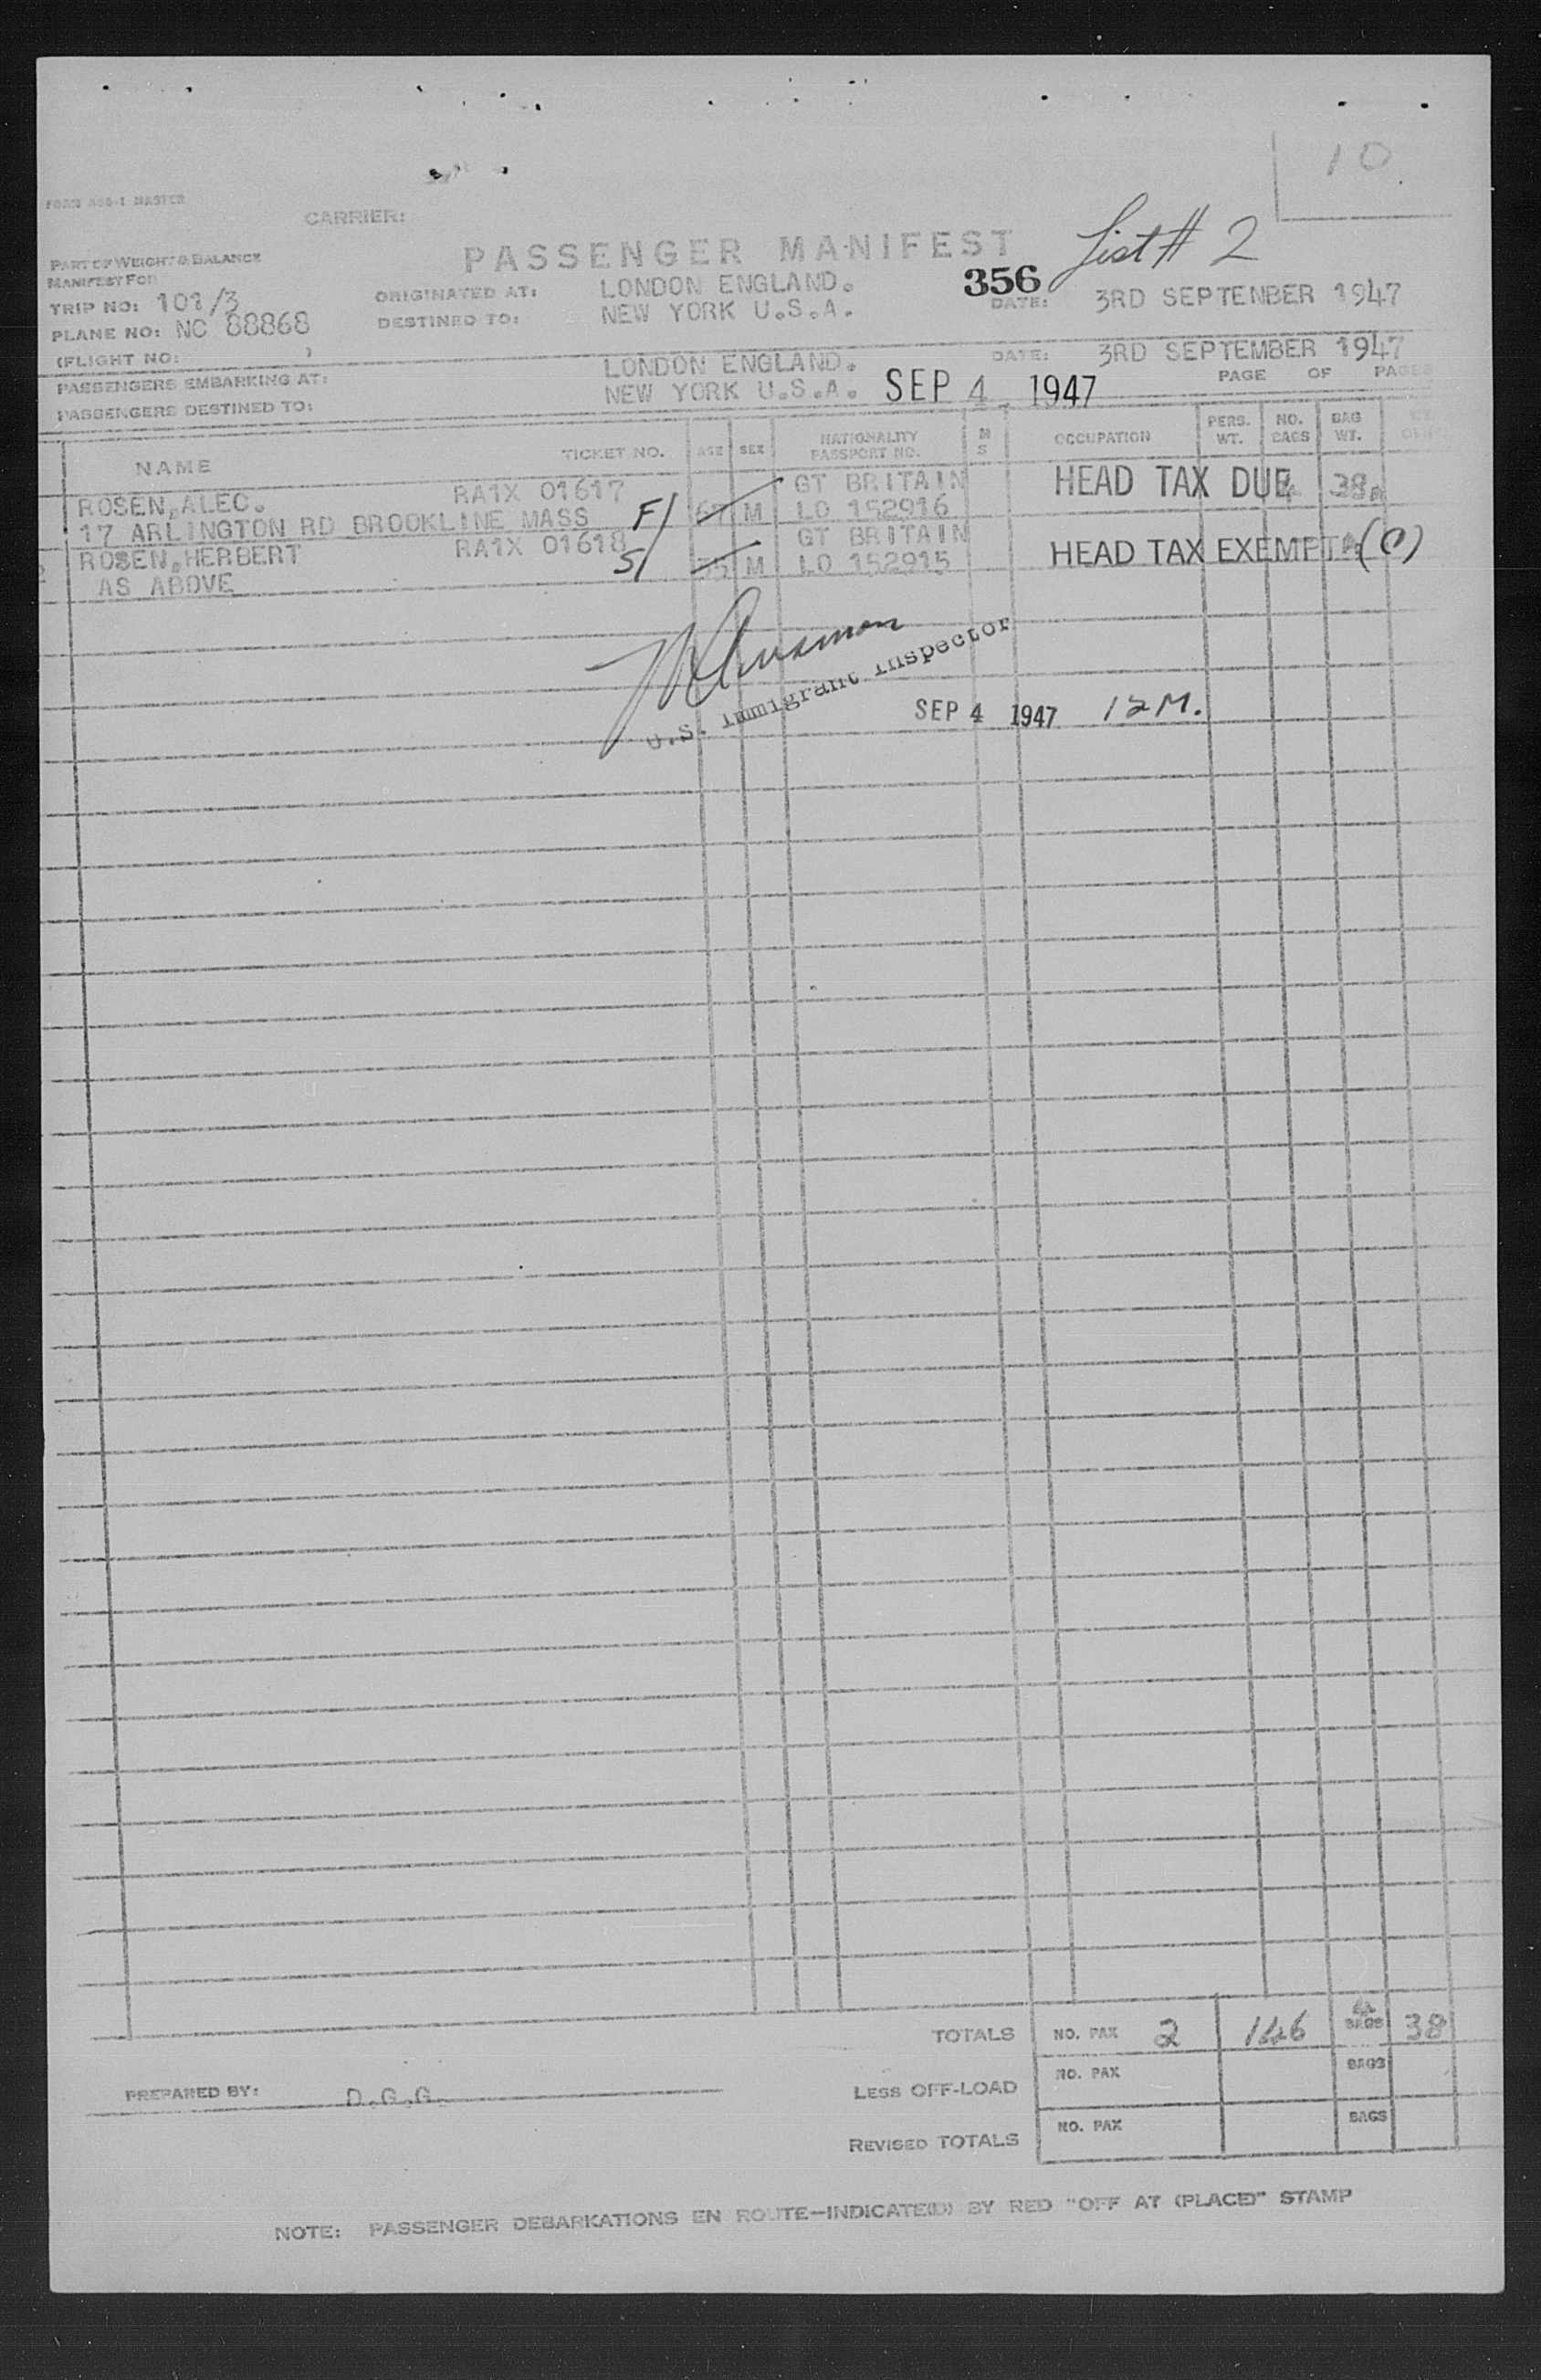 10
FORM 466-1 MASTER
CARRIER:
PASSENGER MANIFEST
List # 2
PART OF WEIGHT & BALANCE
MANIFEST FOR
356
TRIP NO: 101/3
ORIGINATED AT: LONDON ENGLAND.
DATE: 3RD SEPTENBER 1947
PLANE NO: NC 88868
DESTINED TO: NEW YORK U.S.A.
(FLIGHT NO: )
PASSENGERS EMBARKING AT: LONDON ENGLAND.
DATE: 3RD SEPTEMBER 1947
PASSENGERS DESTINED TO: NEW YORK U.S.A.
SEP 4 1947
PAGE OF PAGES
NAME TICKET NO. AGE SEX NATIONALITY PASSPORT NO. M S OCCUPATION PERS. WT. NO. BAGS BAG WT.
ROSEN,ALEC. RA1X 01617 GT BRITAIN HEAD TAX DUE 38
17 ARLINGTON RD BROOKLINE MASS F/ M LO 152916
ROSEN,HERBERT RA1X 01618 GT BRITAIN HEAD TAX EXEMPT (C)
2 AS ABOVE S/ M LO 152915
U.S. Immigrant Inspector
SEP 4 1947 12 M.
TOTALS NO. PAX 2 146 BAGS 38
LESS OFF-LOAD NO. PAX BAGS
PREPARED BY: D.G.G.
REVISED TOTALS NO. PAX BAGS
NOTE: PASSENGER DEBARKATIONS EN ROUTE—INDICATE(D) BY RED "OFF AT (PLACE)" STAMP